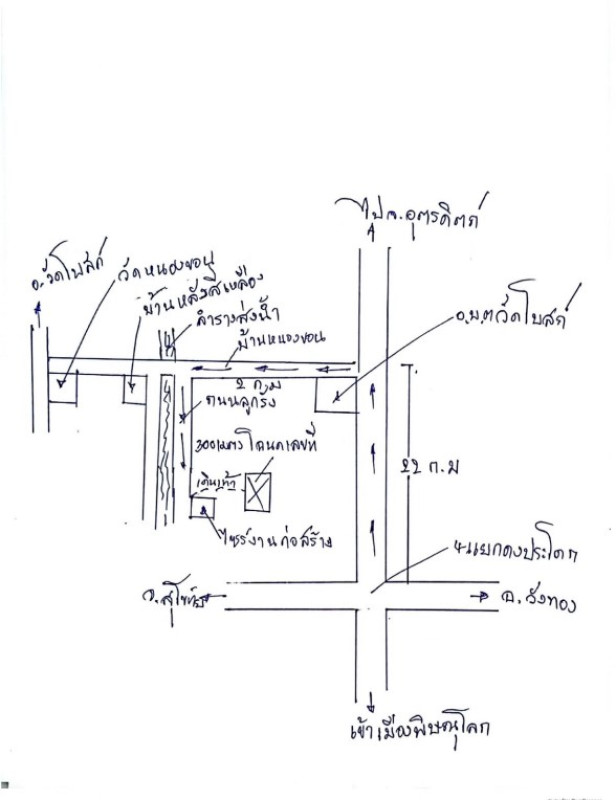 ไป จ.อุตรดิตถ์
อ.วัดโบสถ์
วัดหนองขอน
บ้านหลังสีเหลือง
ลำรางส่งน้ำ
บ้านหนองขอน
อ.บ.ตวัดโบสถ์
2 ก.ม
ถนนลูกรัง
300 เมตร โฉนดเลขที่
เดินเท้า
22 ก.ม
ไซร์งานก่อสร้าง
4 แยกดงประโดก
จ.สุโขทัย
อ.วังทอง
เข้าเมืองพิษณุโลก